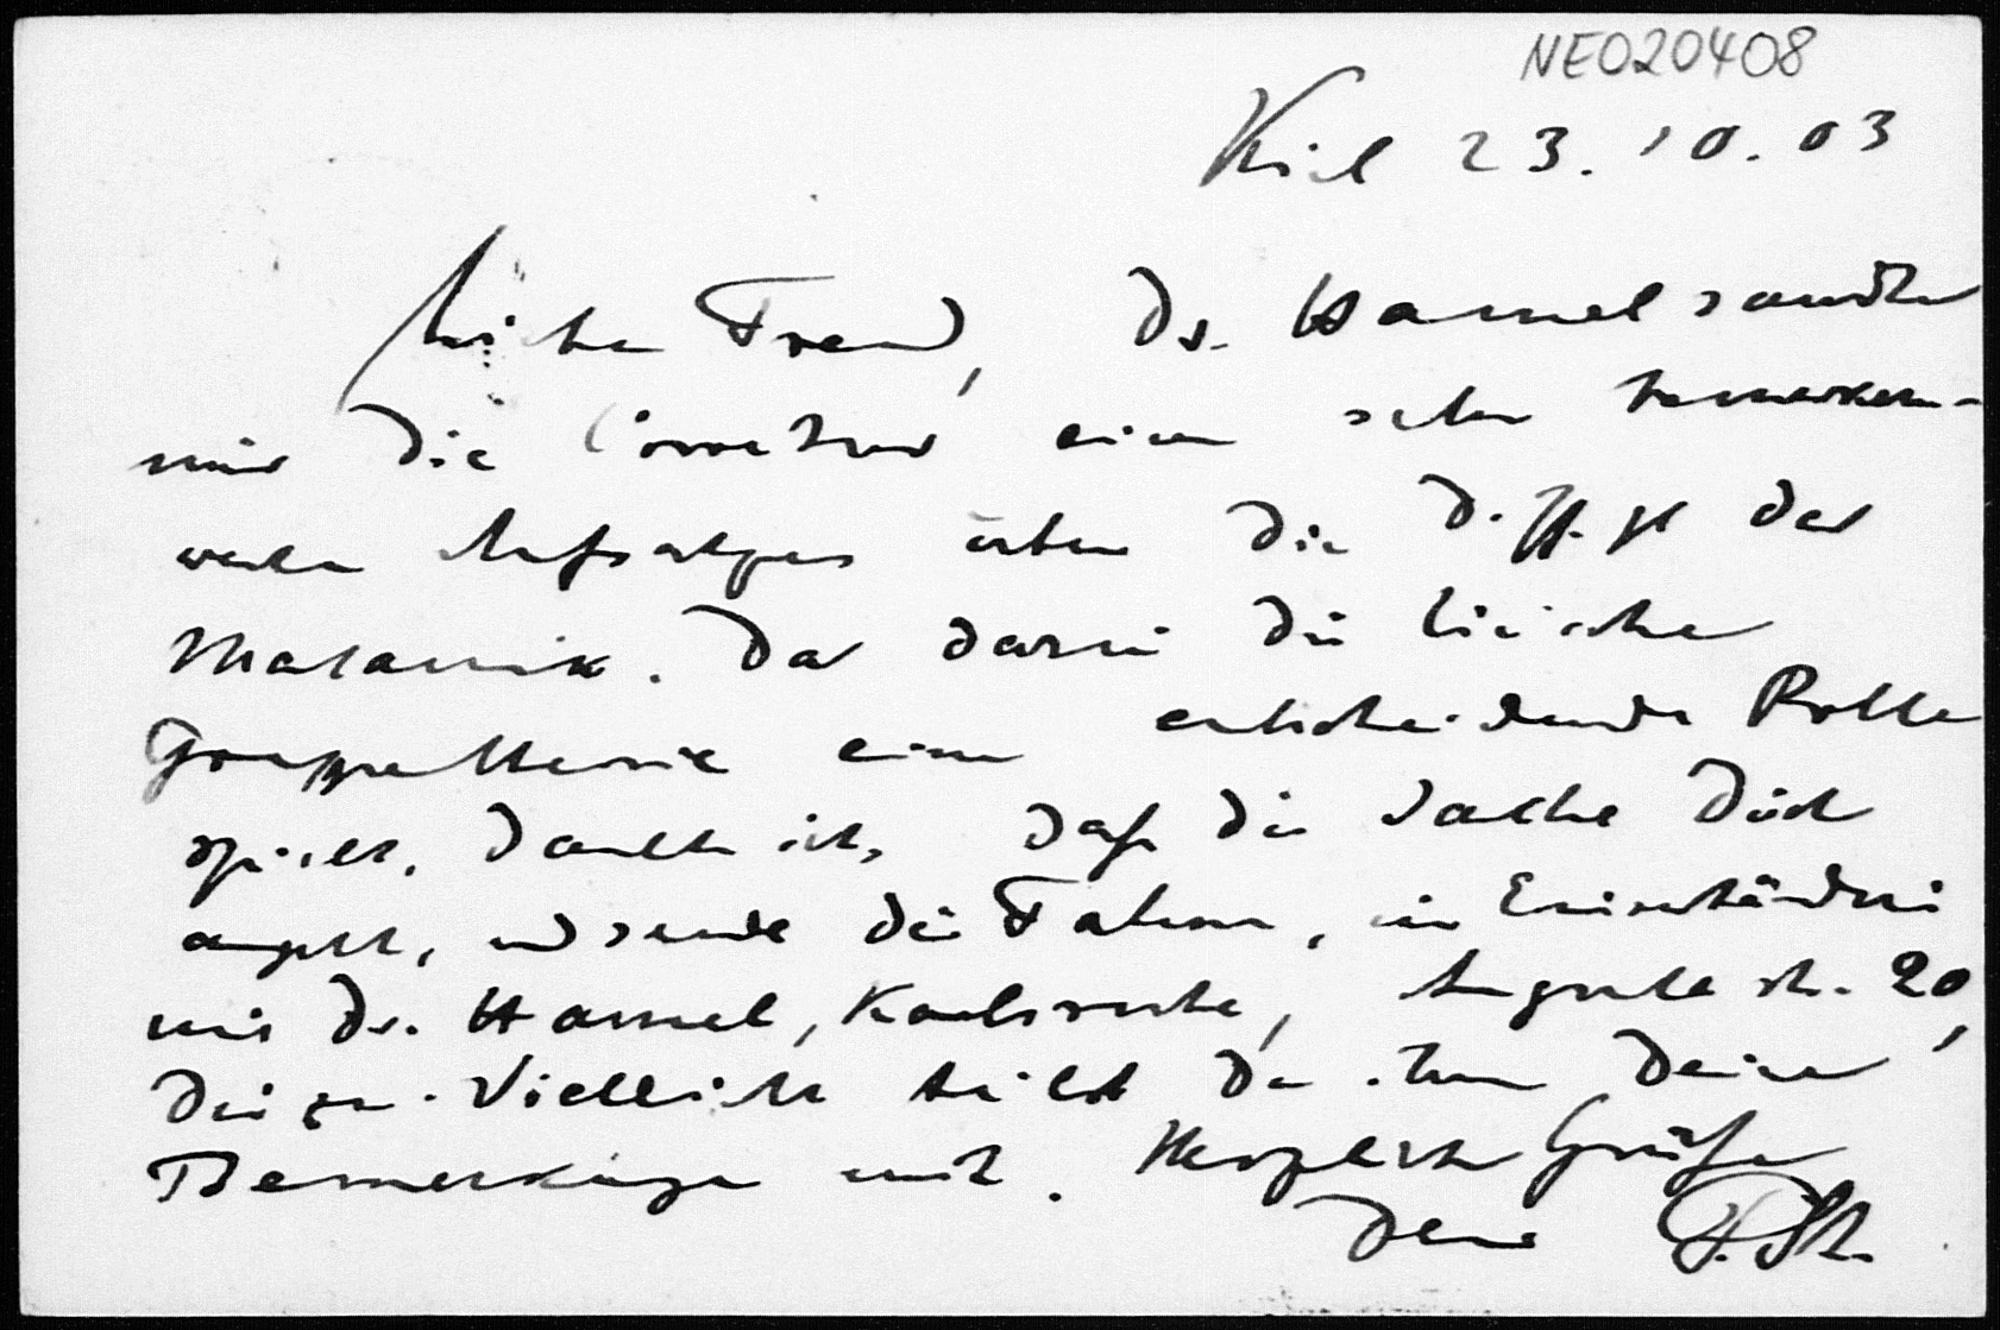 NE020408
Kiel 23.10.03
Lieber Freund, Dr. Hamel sandte
mir die Correktur eines sehr bemerkens-
werten Aufsatzes über die Diffgl der
Mechanik. Da darin die Lie'sche
Gruppentheorie eine entscheidende Rolle
spielt, dachte ich, daß die Sache Dich
angeht, und sende die Fahnen, im Einverständnis
mit Dr. Hamel, Karlsruhe, 20,
Dir zu. Vielleicht teilst Du ihm Deine
Bemerkungen mit. Herzliche Grüße
Dein P. St.